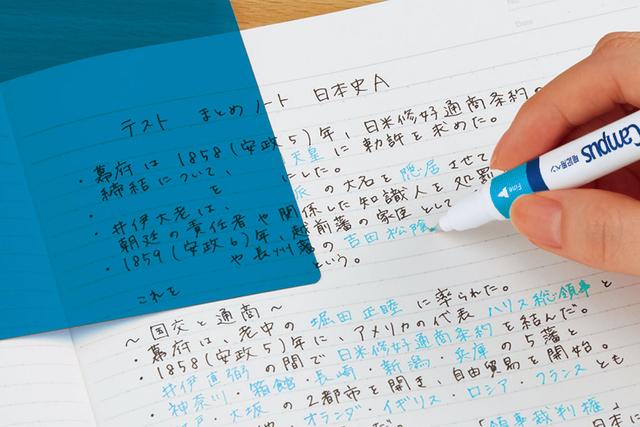 No.
Date
テスト まとめノート 日本史A
・幕府は1858(安政5)年、日米修好通商条約の
締結について、天皇に勅許を求めた。
・を にした。
・井伊大老は、 の大名を隠居させて
朝廷の責任者や関係した知識人を処罰
・1859(安政6)年、越前藩の家臣として
や長州藩の吉田松陰
これを という。
〜国交と通商〜
・幕府は、老中の堀田正睦に率られた。
・1858(安政5)年に、アメリカの代表ハリス総領事と
井伊直弼の間で日米修好通商条約を結んだ。
・神奈川・箱館・長崎・新潟・兵庫の5藩と
・大坂の2都市を開き、自由貿易を開始。
オランダ・イギリス・ロシア・フランスとも
「領事裁判権」
日本に
Campus
Fine